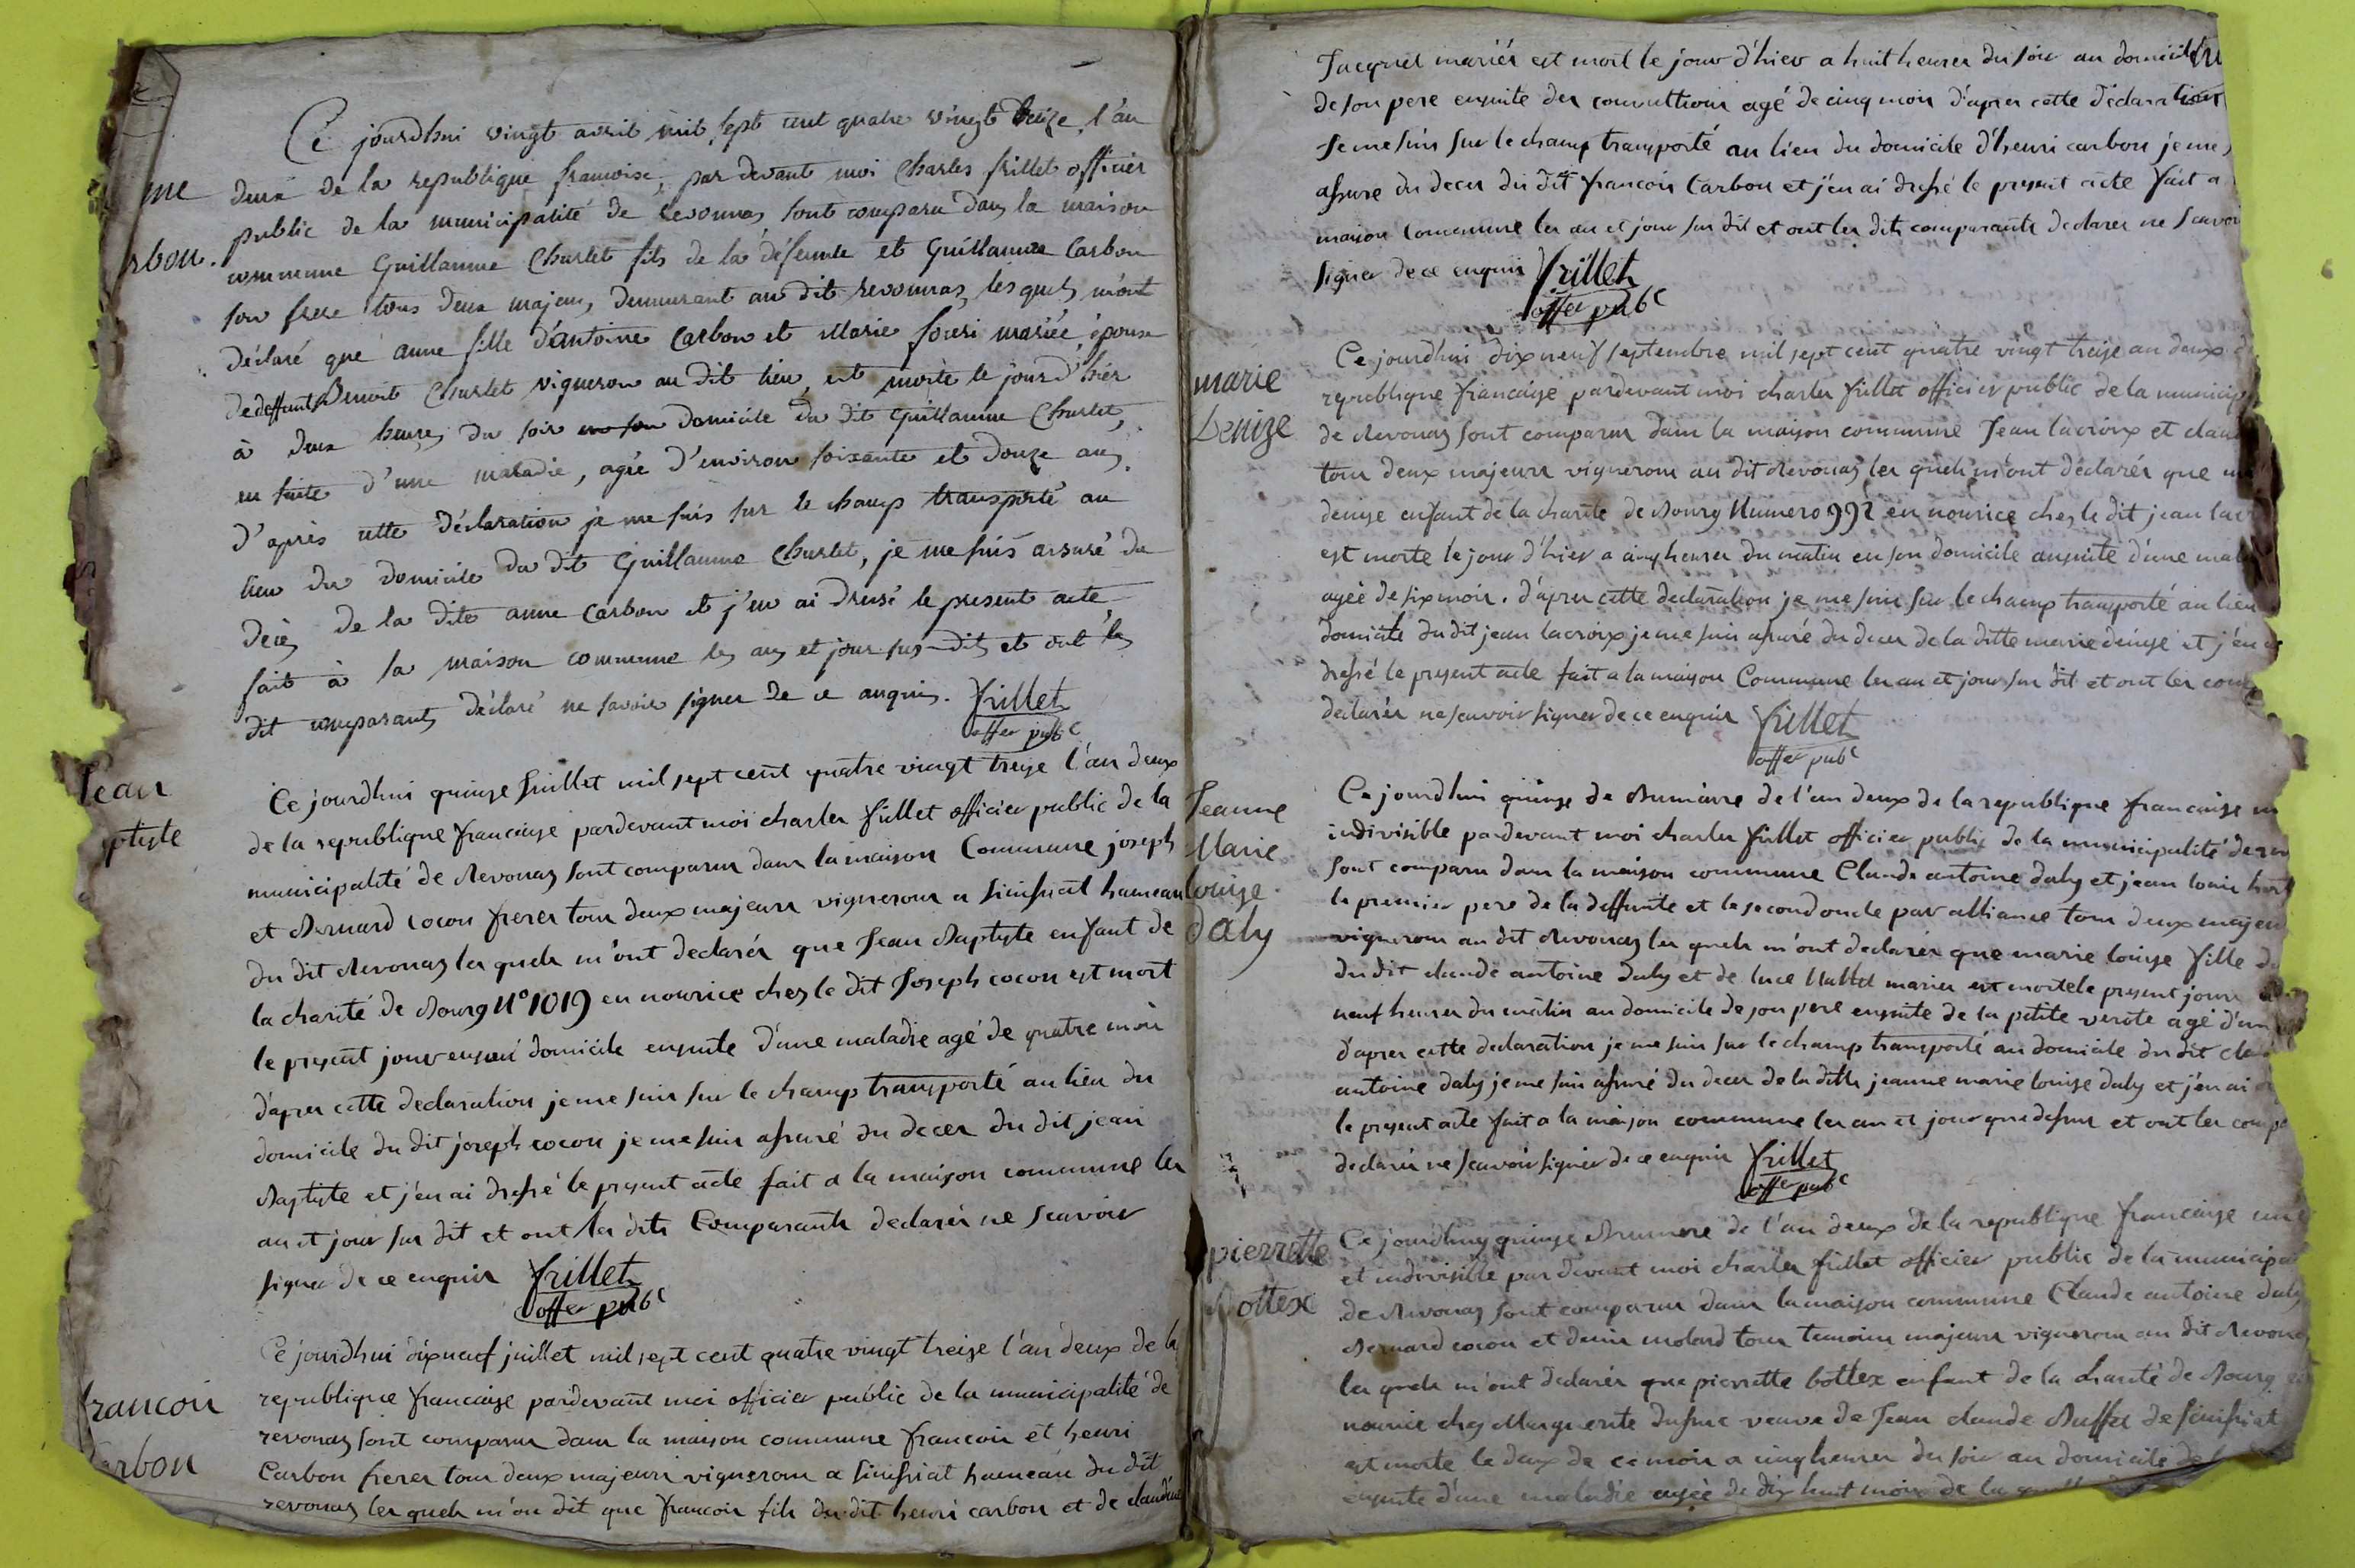 me
rbon.
Ce jourdhui vingt avril mil sept cent quatre vingt treize, l'an
deux de la republique francoise, par devant moi Charles frillet officier
public de la municipalité de revonnas sont comparu dans la maison
commune Guillaume Charlet fils de la défunte et Guillaume Carbon
son frere tous deux majeurs demeurant au dit revonnas, lesquels m'ont
déclaré que anne fille d'antoine Carbon et Marie mariée, épouse
de deffunt Benoit Charlet vigneron au dit lieu est morte le jour d'hier
à deux heures du soir domicile du dit Guillaume Charlet,
en suite d'une maladie, agée d'environ soixante et douze ans,
d'après cette déclaration je me suis sur le champ transporté au
lieu du domicile du dit Guillaume Charlet, je me suis assuré du
décès de la dite anne Carbon et j'en ai dressé le present acte,
fait à la maison commune les ans et jour sus-dits et ont les
dit comparants déclaré ne savoir signer de ce anquis. frillet
offer pubc
Jean
ptiste
Ce jourdhui quinze juillet mil sept cent quatre vingt treize l'an deux
de la republique francaise pardevant moi charles frillet officier public de la
municipalité de Revonas sont comparus dans la maison Commune joseph
et Bernard cocon freres tous deux majeurs vignerons a Sinissiat hameau
du dit Revonas les quels m'ont declarés que Jean Baptiste enfant de
la charité de Bourg N° 1019 en nourice chez le dit Joseph cocon est mort
le present jour en son domicile ensuite d'une maladie agé de quatre mois
d'apres cette declaration je me suis sur le champ transporté au lieu du
domicile du dit joseph cocon je me suis assuré du deces du dit jean
Baptiste et j'en ai dressé le present acte fait a la maison commune les
an et jour sus dit et ont les dits Comparants declarés ne scavoir
signer de ce enquis frillet
offer pubc
francois
arbon
Ce jourdhui dixneuf juillet mil sept cent quatre vingt treize l'an deux de la
republique francaise pardevant moi officier public de la municipalité de
revonas sont comparus dans la maison commune francois et henri
Carbon freres tous deux majeurs vignerons a Sinissiat hameau du dit
revonas les quels m'on dit que francois fils du dit henri carbon et de claudine
Jacquet mariés est mort le jour d'hier a huit heures du soir au domicile
de son pere ensuite des convultions agé de cinq mois d'apres cette declaration
Je me suis sur le champ transporté au lieu du domicile d'henri carbon je me
assure du deces du dit francois Carbon et j'en ai dressé le present acte fait a
maison Commune les an et jour sus dit et ont les dits comparants declares ne scavoir
signer de ce enquis frillet
offer pubc
marie
Denize
Ce jourdhui dixneuf septembre mil sept cent quatre vingt treize an deux
republique francaise pardevant moi charles frillet officier public de la municip
de Revonas sont comparus dans la maison commune Jean lacroix et clau
tous deux majeurs vignerons au dit Revonas les quels m'ont declarés que
denise enfant de la charité de Bourg Numero 992 en nourice chez le dit jean lac
est morte le jour d'hier a cinq heures du matin en son domicile ensuite d'une mal
agée de six mois. d'apres cette declaration je me suis sur le champ transporté au lieu
domicile du dit jean lacroix je me suis assuré du deces de la ditte marie denise et j'en
dressé le present acte fait a la maison Commune les an et jour sus dit et ont les com
declarés ne scavoir signer de ce enquis frillet
offer pubc
Jeanne
Marie
louise
daly
Ce jourdhui quinze de Brumaire de l'an deux de la republique francaise
indivisible pardevant moi charles frillet officier public de la municipalité de
sont comparu dans la maison commune Claude antoine daly et jean louis
le premier pere de la deffunte et le second oncle par alliance tous deux majeu
vignerons au dit Revonas les quels m'ont declarés que marie louise fille
du dit claude antoine daly et de luce mariés est morte le present jour
neuf heures du matin au domicile de son pere ensuite de la petite verole agé d'un
d'apres cette declaration je me suis sur le champ transporté au domicile du dit cla
antoine daly je me suis assuré du deces de la ditte jeanne marie louise daly et j'en ai
le present acte fait a la maison commune les an et jour que dessus et ont les comp
declarés ne scavoir signer de ce enquis frillet
offer pubc
pierrette
Bottex
Ce jourdhuy quinze Brumere de l'an deux de la republique francaise une
et indivisible par devant moi charles frillet officier public de la municipa
de Revonas sont comparus dans la maison commune Claude antoine daly
Bernard cocon et denis molard tous temoins majeurs vignerons au dit Revonas
les quels m'ont declarés que pierrette bottex enfant de la charité de Bourg
nourice chez Marguerite veuve de Jean claude Buffet de Sinissiat
est morte le deux de ce mois a cinq heures du soir au domicile de
ensuite d'une maladie agée de dix huit mois de la